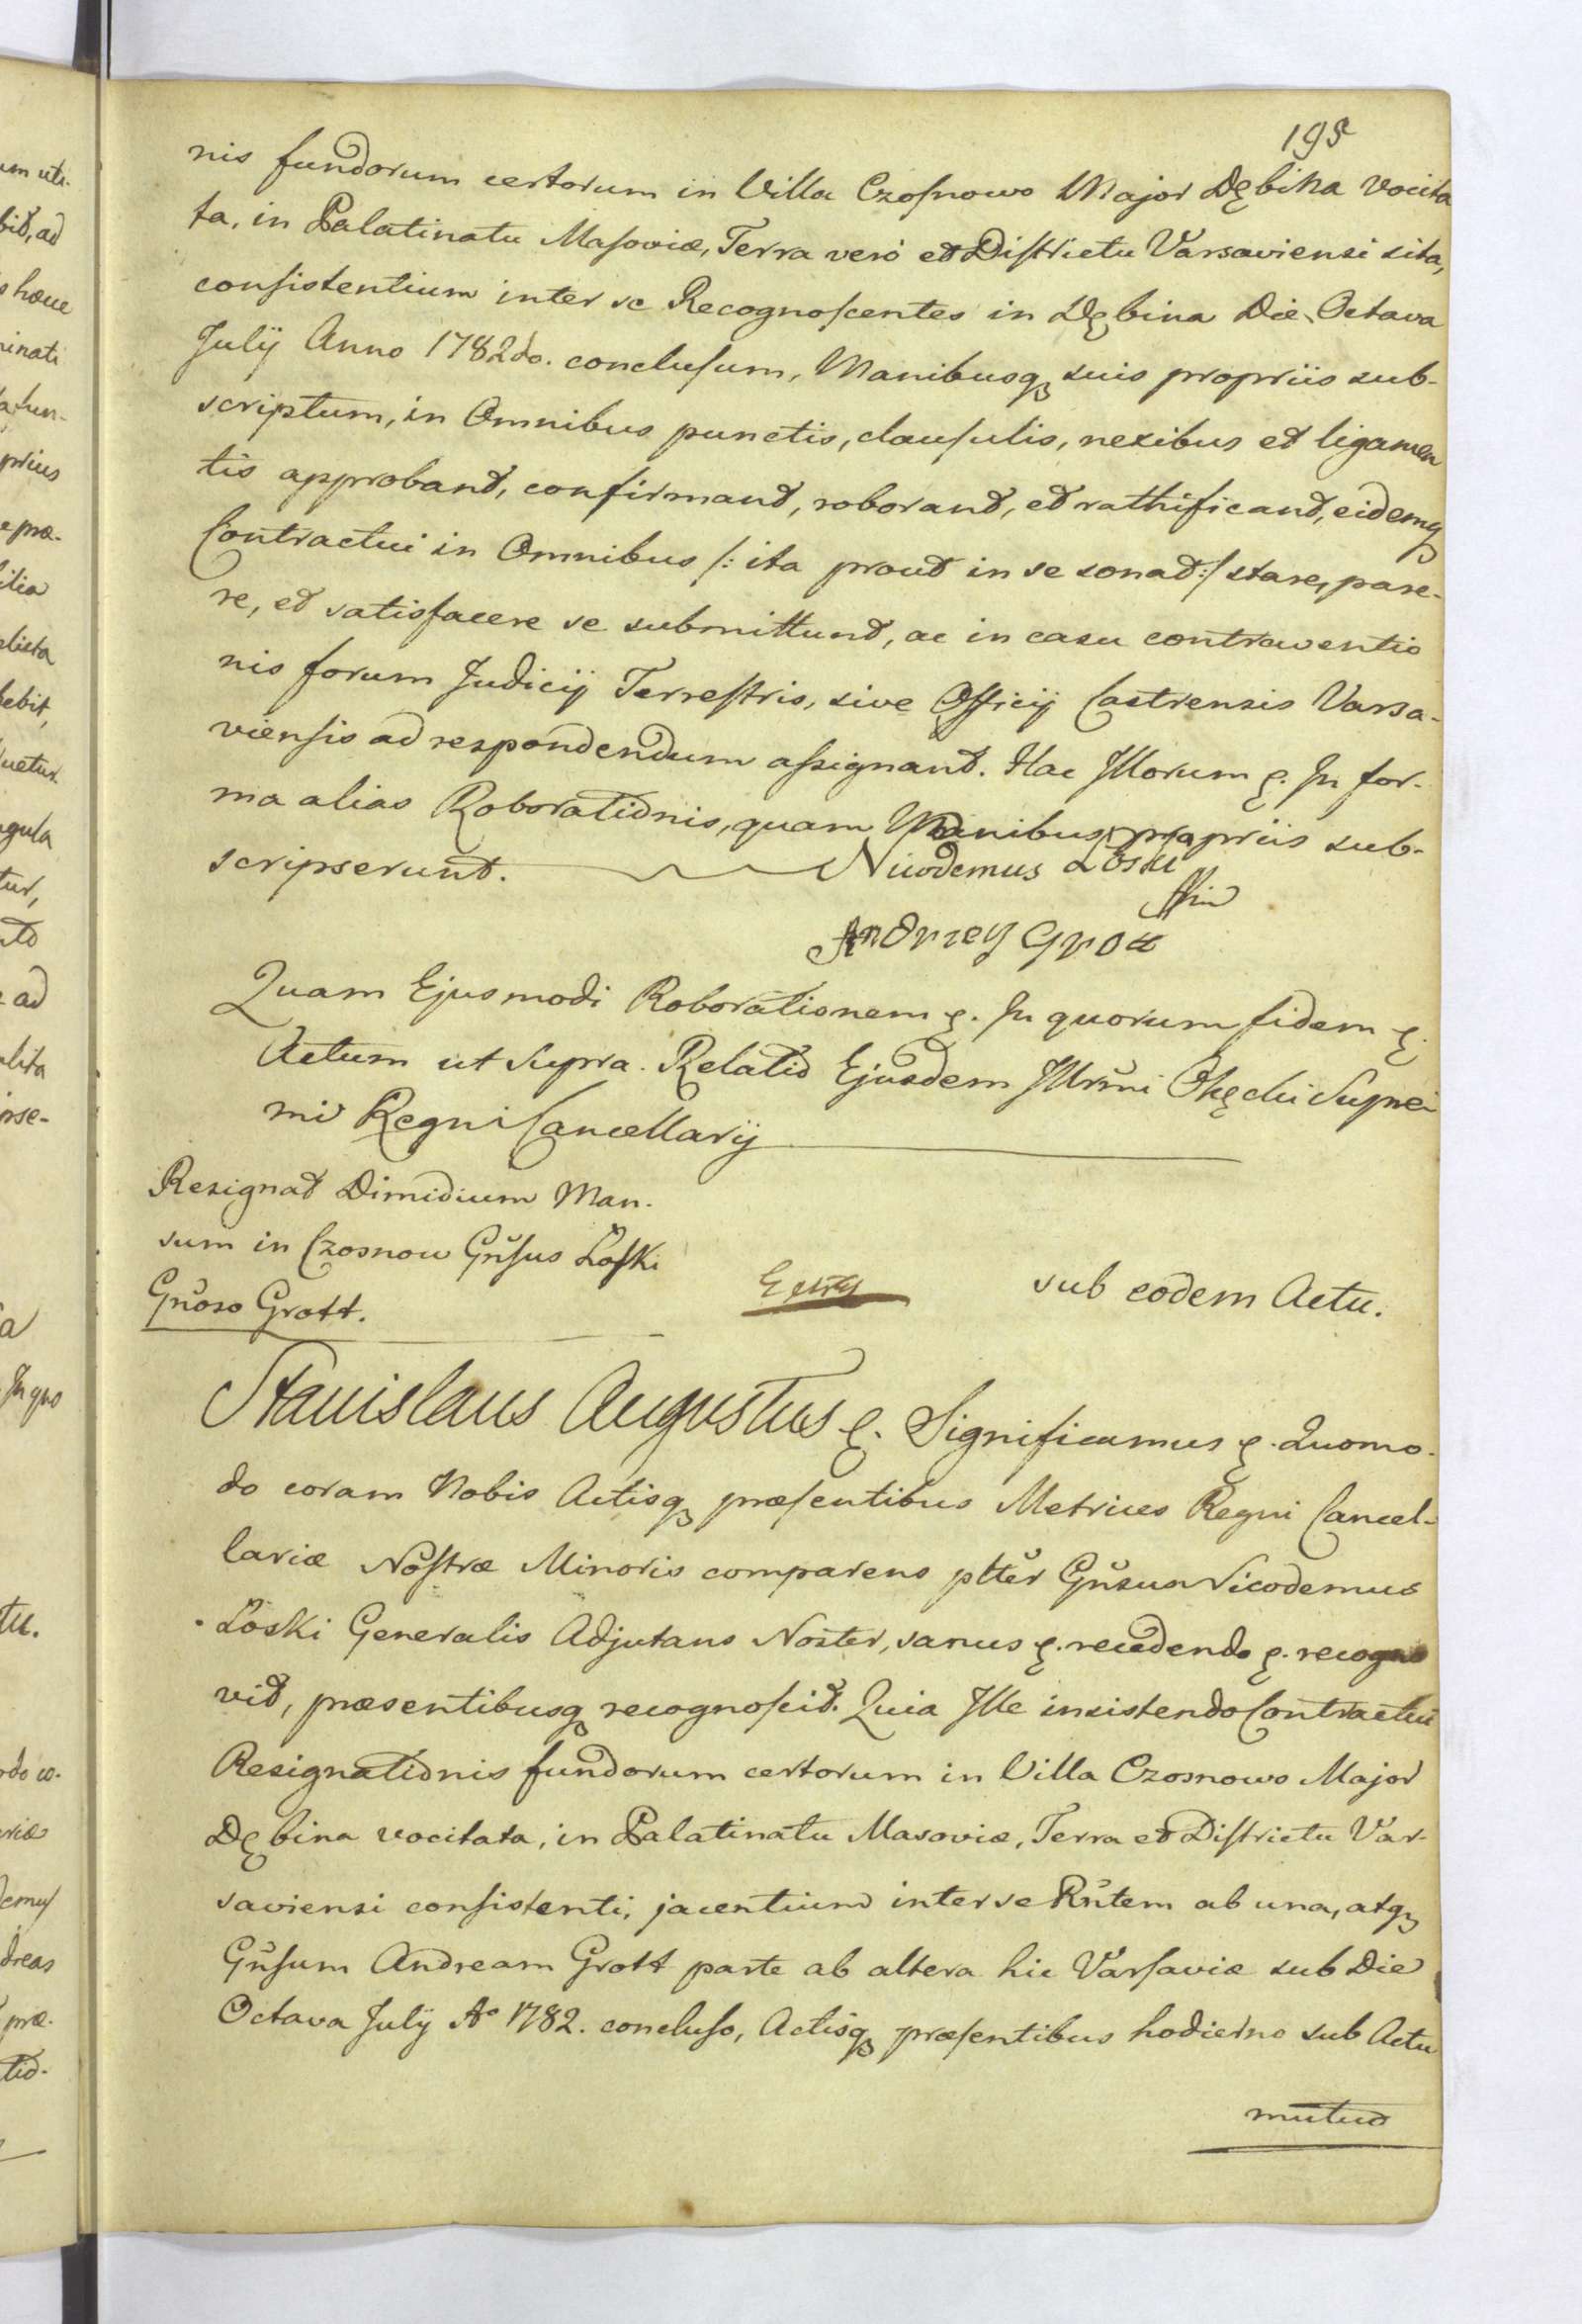 195
nis fundorum certorum in Villa Czosnowo Major Dębina vocita
ta, in Palatinatu Masoviæ, Terra verò et Districtu Varsaviensi sita,
consistentium inter se Recognoscentes in Dębina Die Octava
Julÿ Anno 1782do. conclusum, Manibusq suis propriis sub-
scriptum, in Omnibus punctis, clausulis, nexibus et ligamen
tis approbant, confirmant, roborant, et rathificant, eidemq
Contractui in Omnibus /: ita prout in se sonat :/ stare, pare-
re, et satisfacere se submittunt, ac in casu contraventio
nis forum Judicij Terrestris, sive Officij Castrensis Varsa-
viensis ad respondendum assignant. Hac Illorum ę. In for-
ma alias Roborationis, quam Manibus propriis sub-
scripserunt. Nicodemus Łoski
Andrzey Grott
Quam Ejusmodi Roborationem ę. In quorum fidem ę.
Actum ut Supra. Relatio Ejusdem Illrmi Okęcki Supre-
mi Regni Cancellarij
Resignat Dimidium Man-
sum in Czosnow Gnsus Łoski
Gnoso Grott.
sub eodem Actu.
Stanislaus Augustus ę. Significamus ę. Quomo-
do coram Nobis Actisq præsentibus Metrices Regni Cancel-
lariæ Nostræ Minoris comparens pltter Gnsus Nicodemus
Łoski Generalis Adjutans Noster, sanus ę. recedendo ę. recogno
vit, præsentibusq recognoscit. Quia Ille insistendo Contractui
Resignationis fundorum certorum in Villa Czosnowo Major
Dębina vocitata, in Palatinatu Masoviæ, Terra et Districtu Var-
saviensi consistenti, jacentium inter se Rntem ab una, atq
Gnsum Andream Grott parte ab altera hic Varsaviæ sub Die
Octava Julÿ Ao 1782. concluso, Actisq præsentibus hodierno sub Actu
mutuo